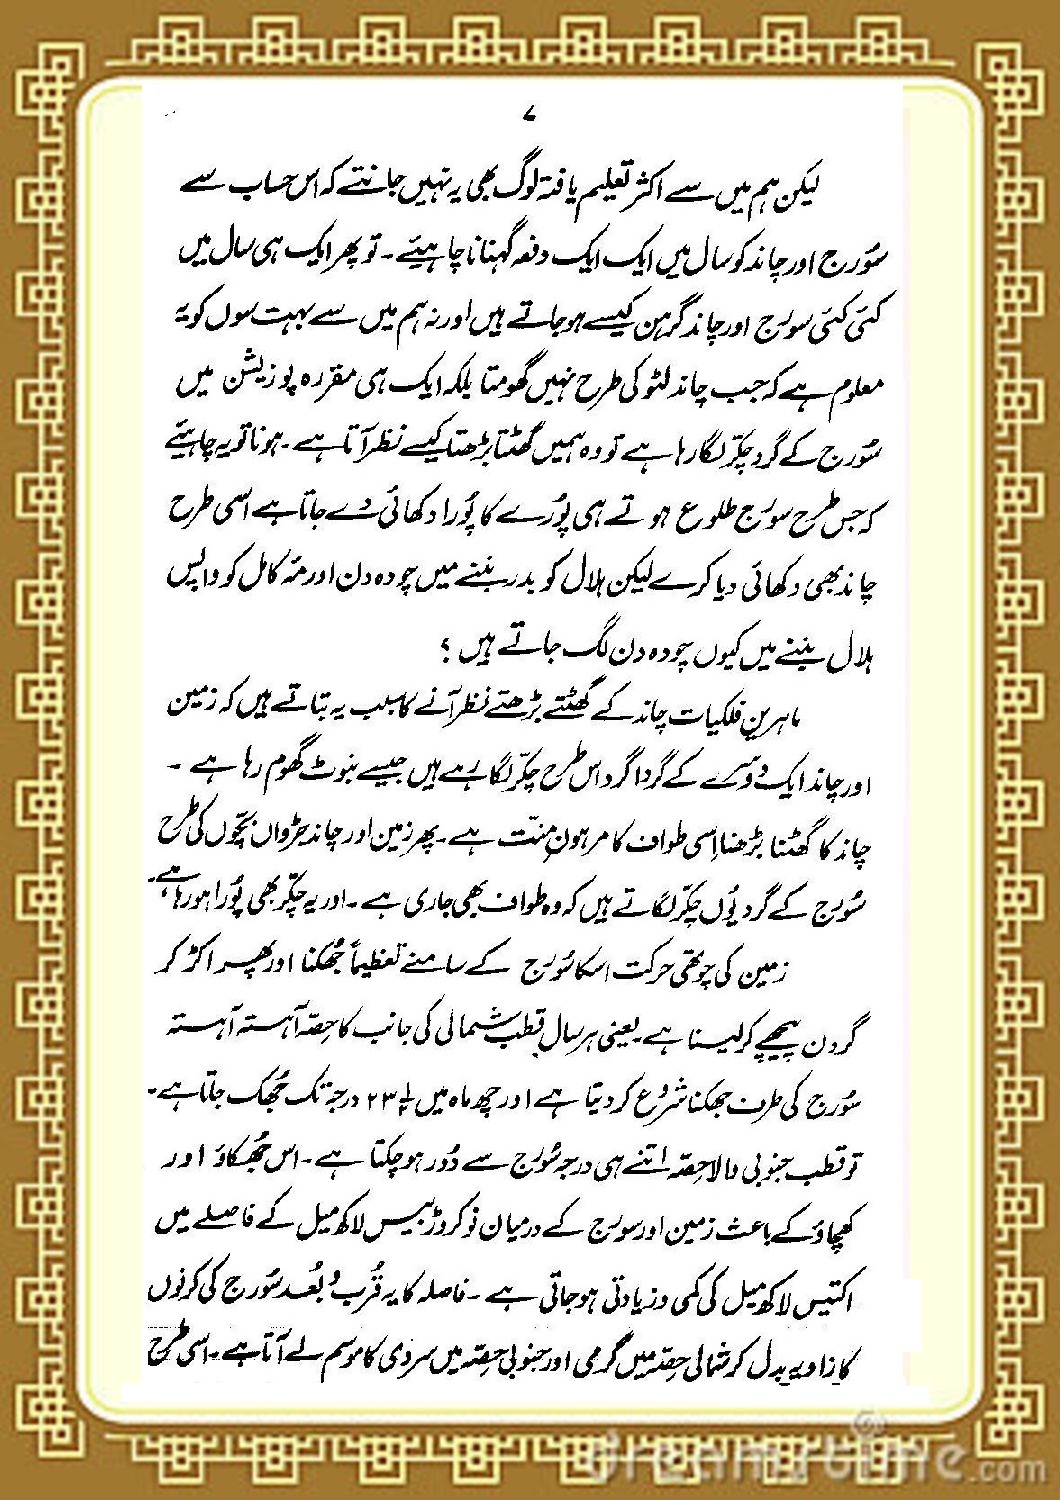 ۷
لیکن ہم میں سے اکثر تعلیم یافتہ لوگ بھی یہ نہیں جانتے کہ اس حساب سے
سُورج اور چاند کو سال میں ایک ایک دفعہ گہنانا چاہیئے۔ تو پھر ایک ہی سال میں
کئی کئی سورج اور چاند گرہن کیسے ہو جاتے ہیں اور نہ ہم میں سے بہت سوں کو یہ
معلوم ہے کہ جب چاند لٹو کی طرح نہیں گھومتا بلکہ ایک ہی مقررہ پوزیشن میں
سُورج کے گرد چکّر لگا رہا ہے تو وہ ہمیں گھٹتا بڑھتا کیسے نظر آتا ہے۔ ہونا تو یہ چاہیئے
کہ جس طرح سورج طلوع ہوتے ہی پُورے کا پُورا دکھائی دے جاتا ہے اسی طرح
چاند بھی دکھائی دیا کرے لیکن ہلال کو بدر بننے میں چودہ دن اور مہ کامل کو واپس
ہلال بننے میں کیوں چودہ دن لگ جاتے ہیں ؟
ماہرینِ فلکیات چاند کے گھٹتے بڑھتے نظر آنے کا سبب یہ بتاتے ہیں کہ زمین
اور چاند ایک دوسرے کے گردا گرد اس طرح چکّر لگا رہے ہیں جیسے بنوٹ گھوم رہا ہے ۔
چاند کا گھٹنا بڑھنا اِسی طواف کا مرہونِ منّت ہے۔ پھر زمین اور چاند جڑواں بچّوں کی طرح
سُورج کے گرد یُوں چکّر لگاتے ہیں کہ وہ طواف بھی جاری ہے ۔ اور یہ چکّر بھی پُورا ہو رہا ہے۔
زمین کی چوتھی حرکت اسکا سُورج کے سامنے تعظیماً جُھکنا اور پھر اکڑ کر
گردن پیچھے کر لینا ہے یعنی ہر سال قطب شمالی کی جانب کا حِصّہ آہستہ آہستہ
سُورج کی طرف جھکنا شروع کر دیتا ہے اور چھ ماہ میں ½۲۳ درجہ تک جُھک جاتا ہے۔
تو قطب جنوبی والا حِصّہ اتنے ہی درجہ سُورج سے دُور ہو چکتا ہے۔ اس جُھکاؤ اور
کھچاؤ کے باعث زمین اور سورج کے درمیان نو کروڑ بیس لاکھ میل کے فاصلے میں
اکتیس لاکھ میل کی کمی و زیادتی ہو جاتی ہے ۔ فاصلہ کا یہ قُرب و بُعد سُورج کی کرنوں
کا زاویہ بدل کر شمالی حِصّہ میں گرمی اور جنوبی حِصّہ میں سردی کا موسم لے آتا ہے۔ اسی طرح
dreamstime.com